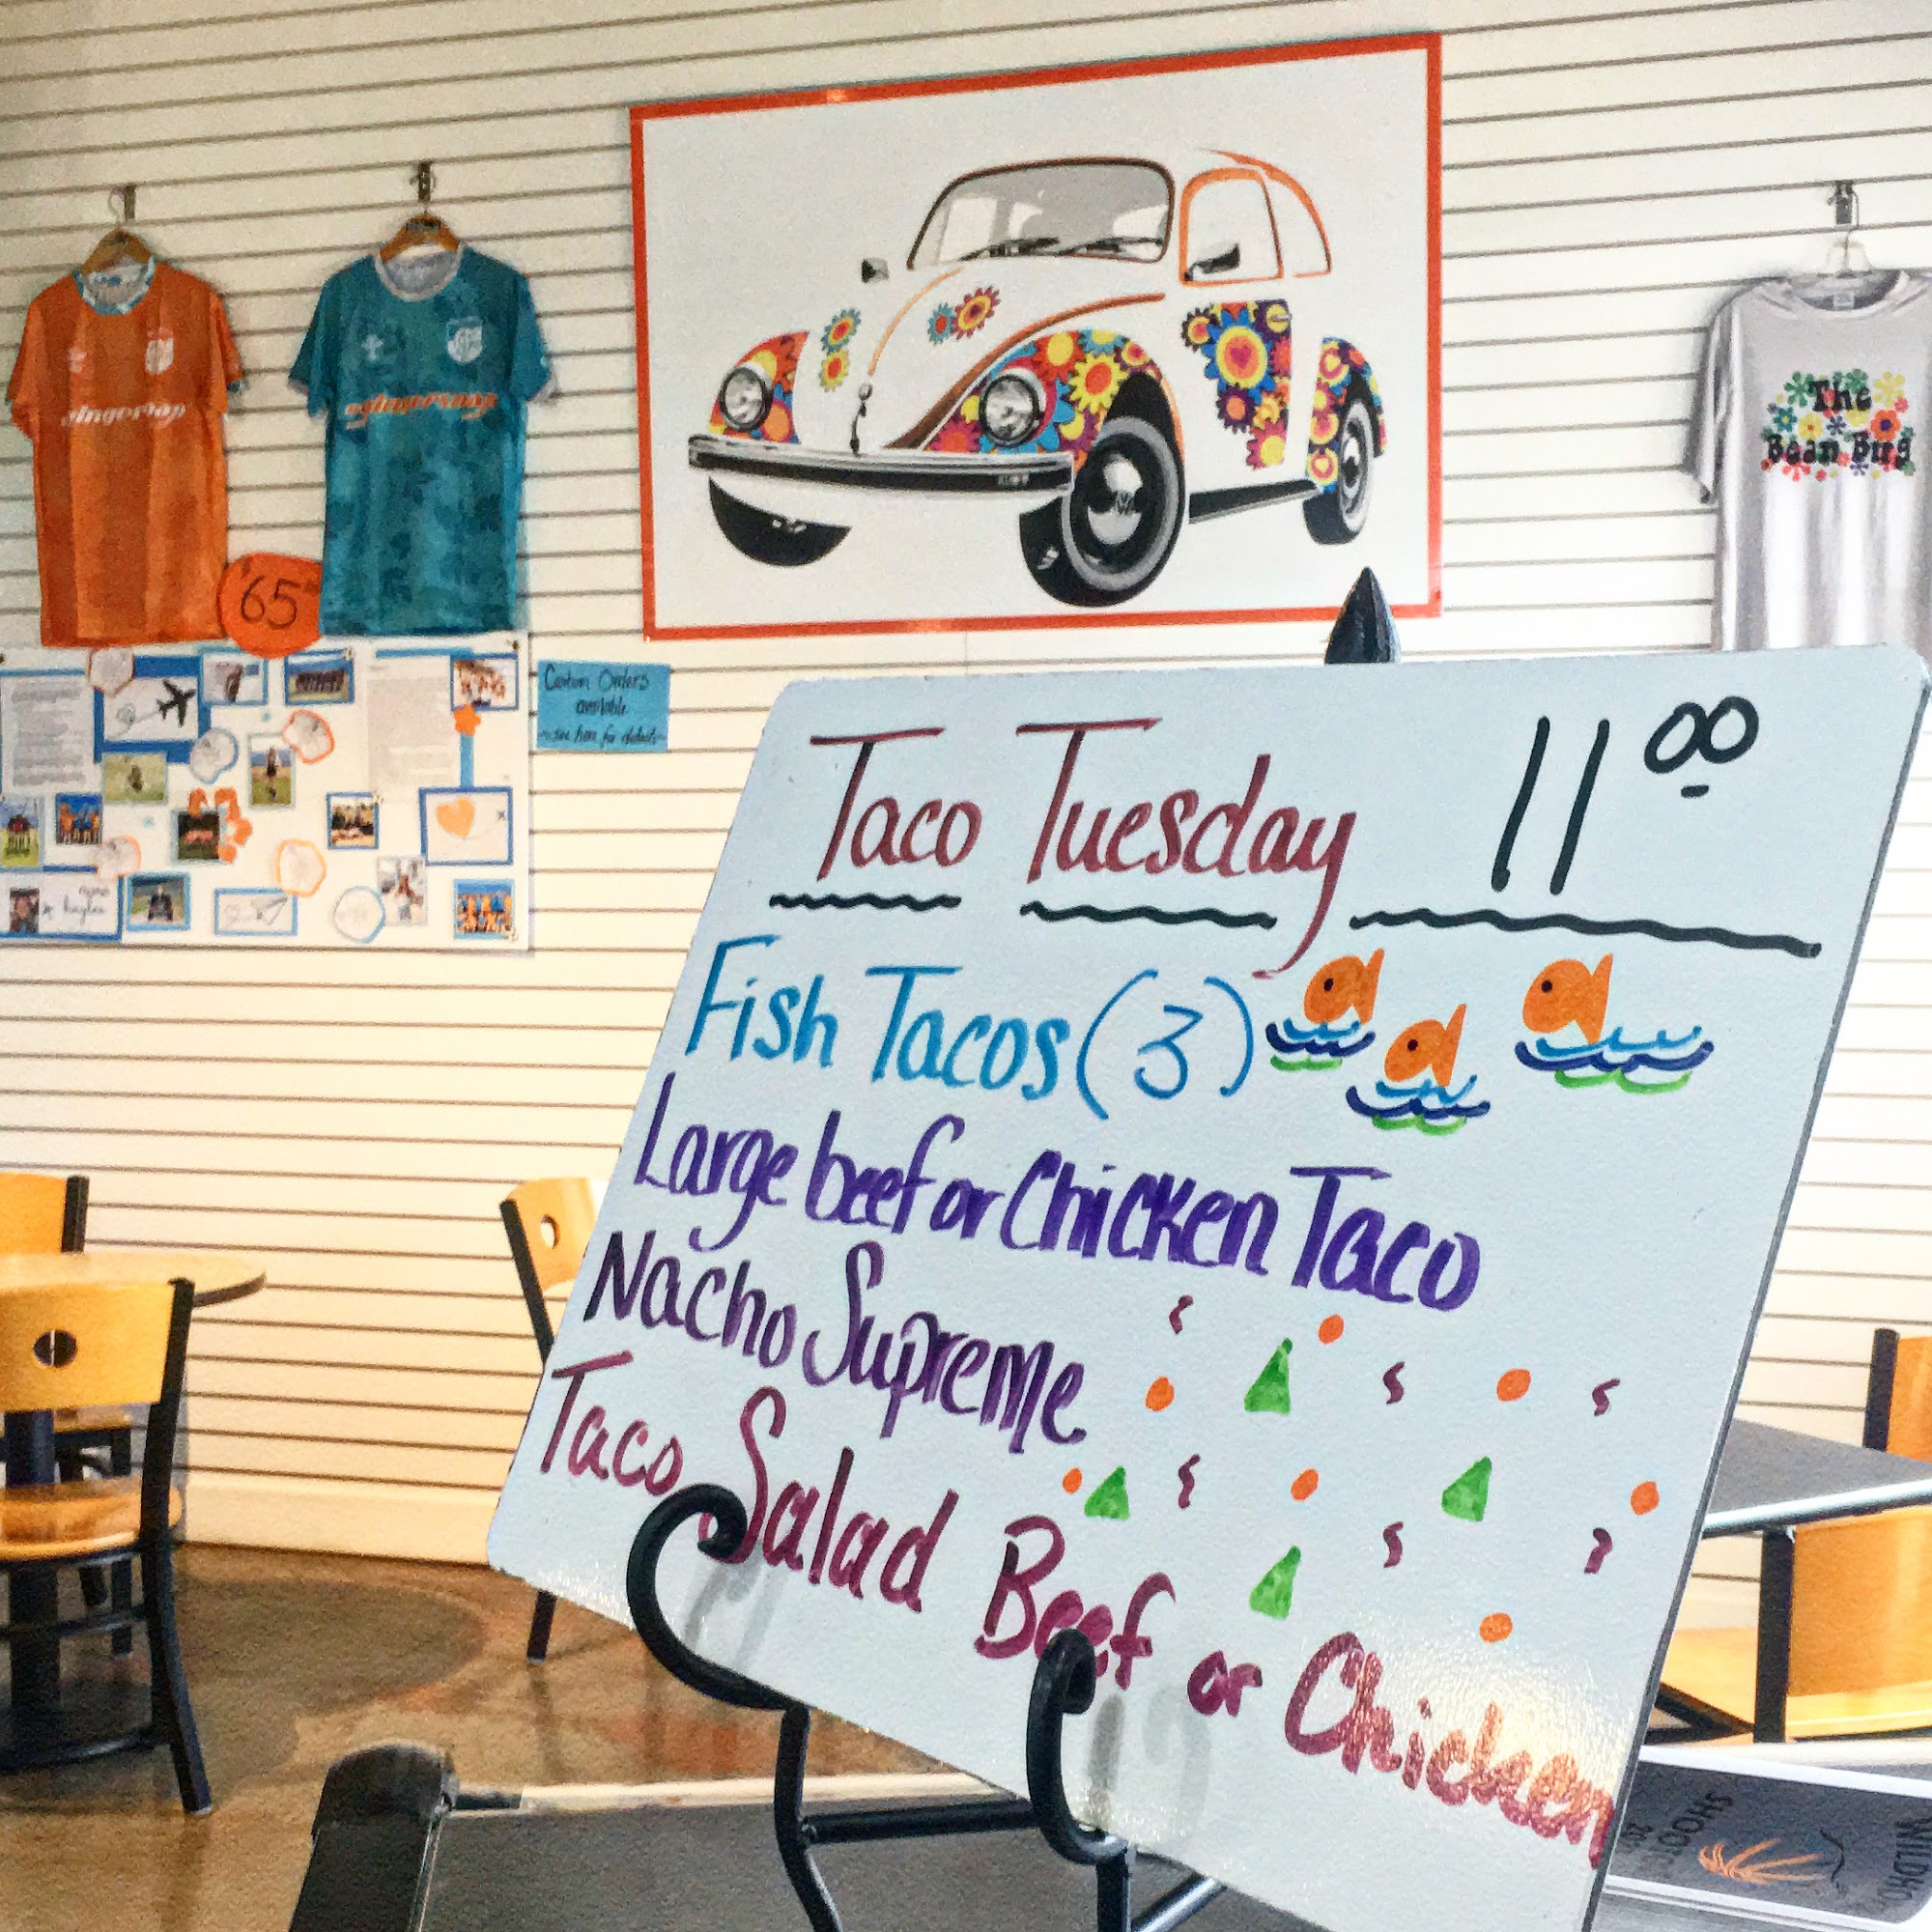 gingersnap
gingersnap
The
Bean Bug
$65
Custom Orders
available
see here for details
Taco Tuesday 11 00
Fish Tacos (3)
Large beef or Chicken Taco
Nacho Supreme
Taco Salad Beef or Chicken
SHOOTS